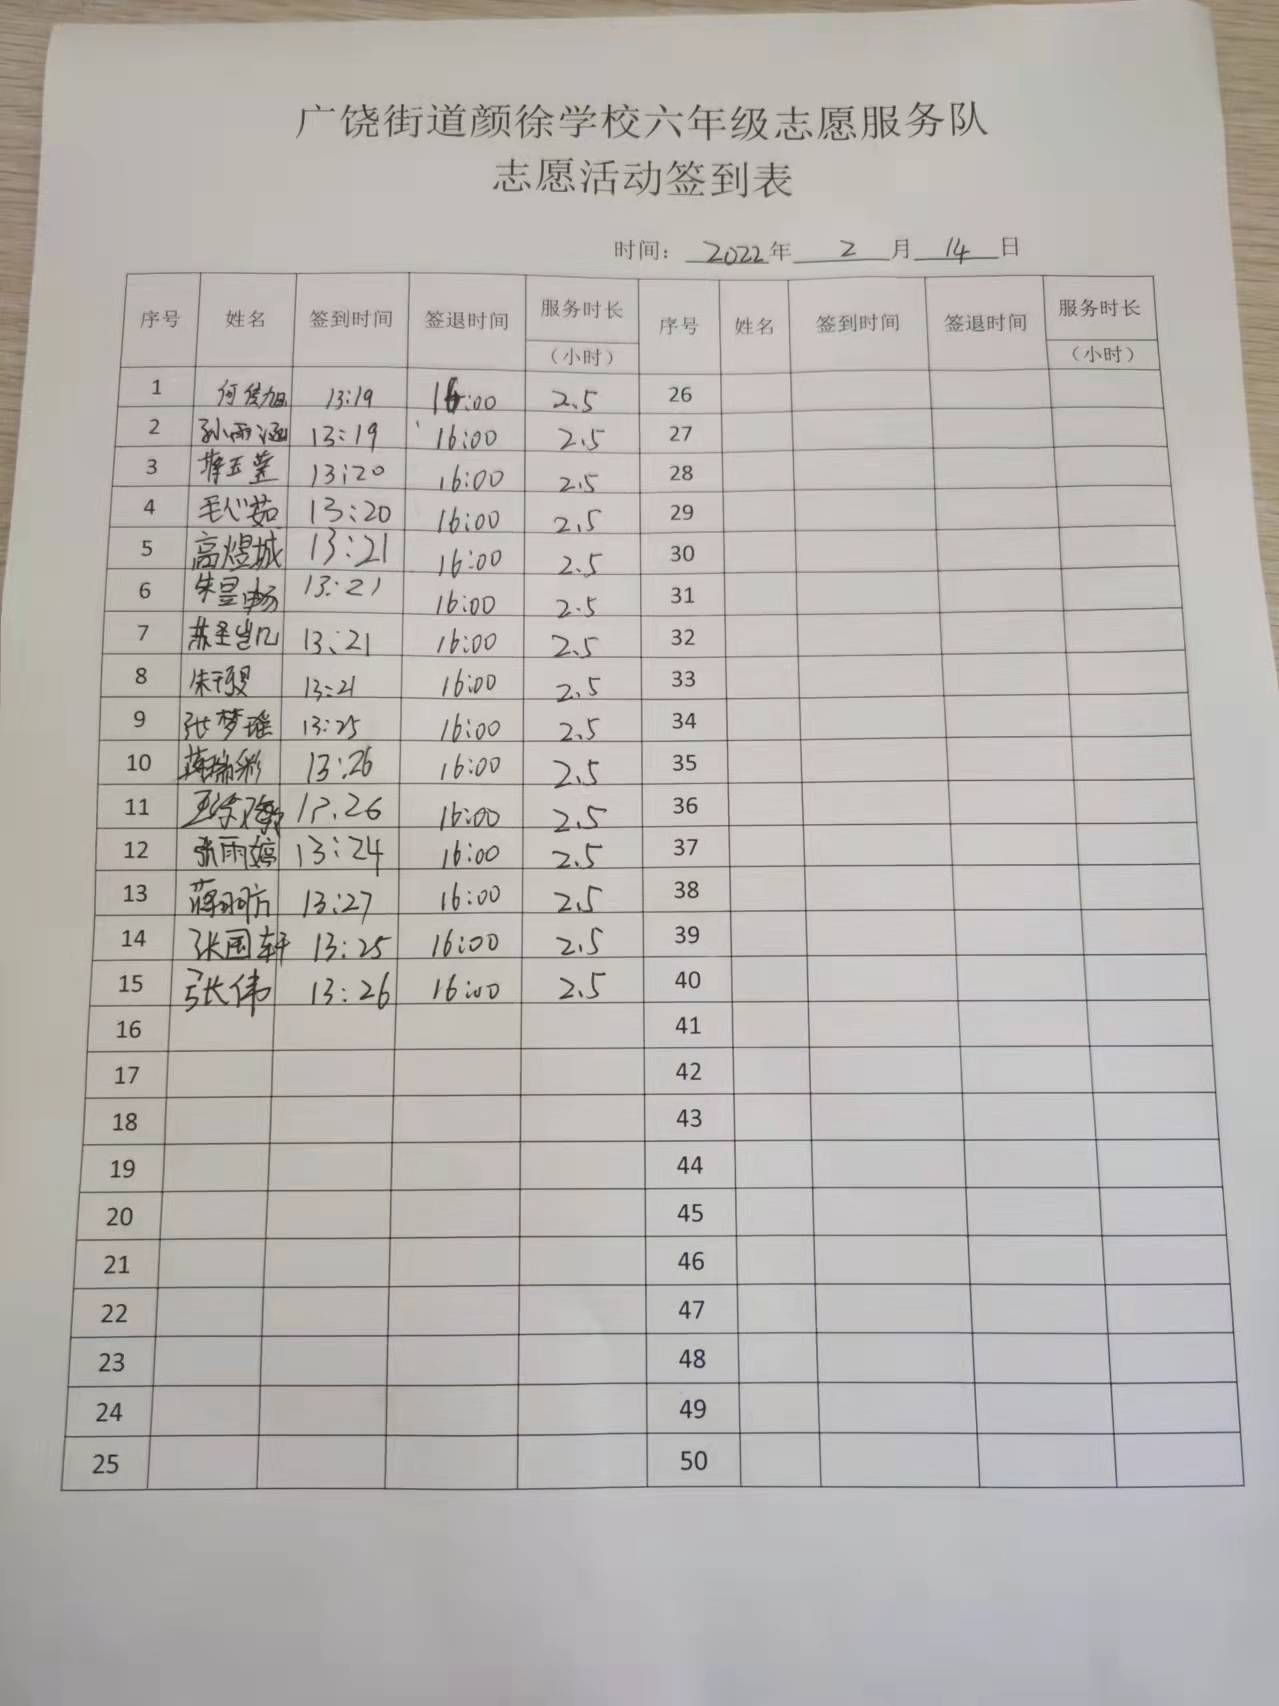 广饶街道颜徐学校六年级志愿服务队
志愿活动签到表
时间： 2022年 2 月 14 日
序号 姓名 签到时间 签退时间 服务时长（小时） 序号 姓名 签到时间 签退时间 服务时长（小时）
1 何俊旭 13:19 16:00 2.5 26
2 孙雨涵 13:19 16:00 2.5 27
3 13:20 16:00 2.5 28
4 毛心茹 13:20 16:00 2.5 29
5 高煜城 13:21 16:00 2.5 30
6 朱昱畅 13:21 16:00 2.5 31
7 13:21 16:00 2.5 32
8 13:21 16:00 2.5 33
9 张梦瑶 13:25 16:00 2.5 34
10 蒋瑞彩 13:26 16:00 2.5 35
11 26 16:00 2.5 36
12 张雨婷 13:24 16:00 2.5 37
13 13:27 16:00 2.5 38
14 张国轩 13:25 16:00 2.5 39
15 张伟 13:26 16:00 2.5 40
16 41
17 42
18 43
19 44
20 45
21 46
22 47
23 48
24 49
25 50